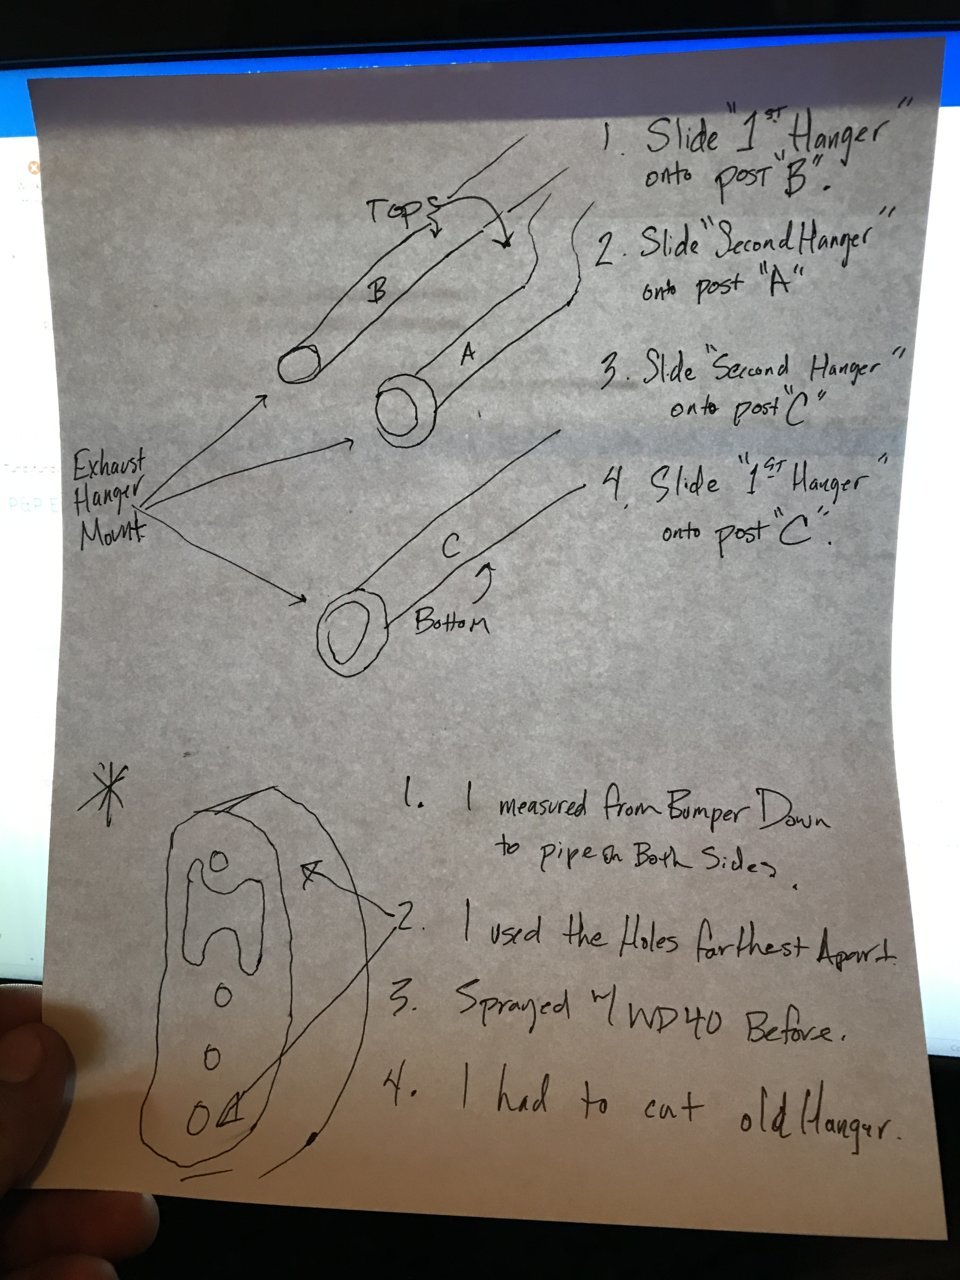 1. Slide "1st Hanger"
onto post "B".
Tops
2. Slide "Second Hanger"
onto post "A"
B
A
3. Slide "Second Hanger"
onto post "C"
Exhaust
Hanger
Mount
4. Slide "1st Hanger"
onto post "C".
C
Bottom
1. I measured from Bumper Down
to pipe on Both Sides.
2. I used the Holes farthest Apart.
3. Sprayed w/ WD40 Before.
4. I had to cut old Hanger.